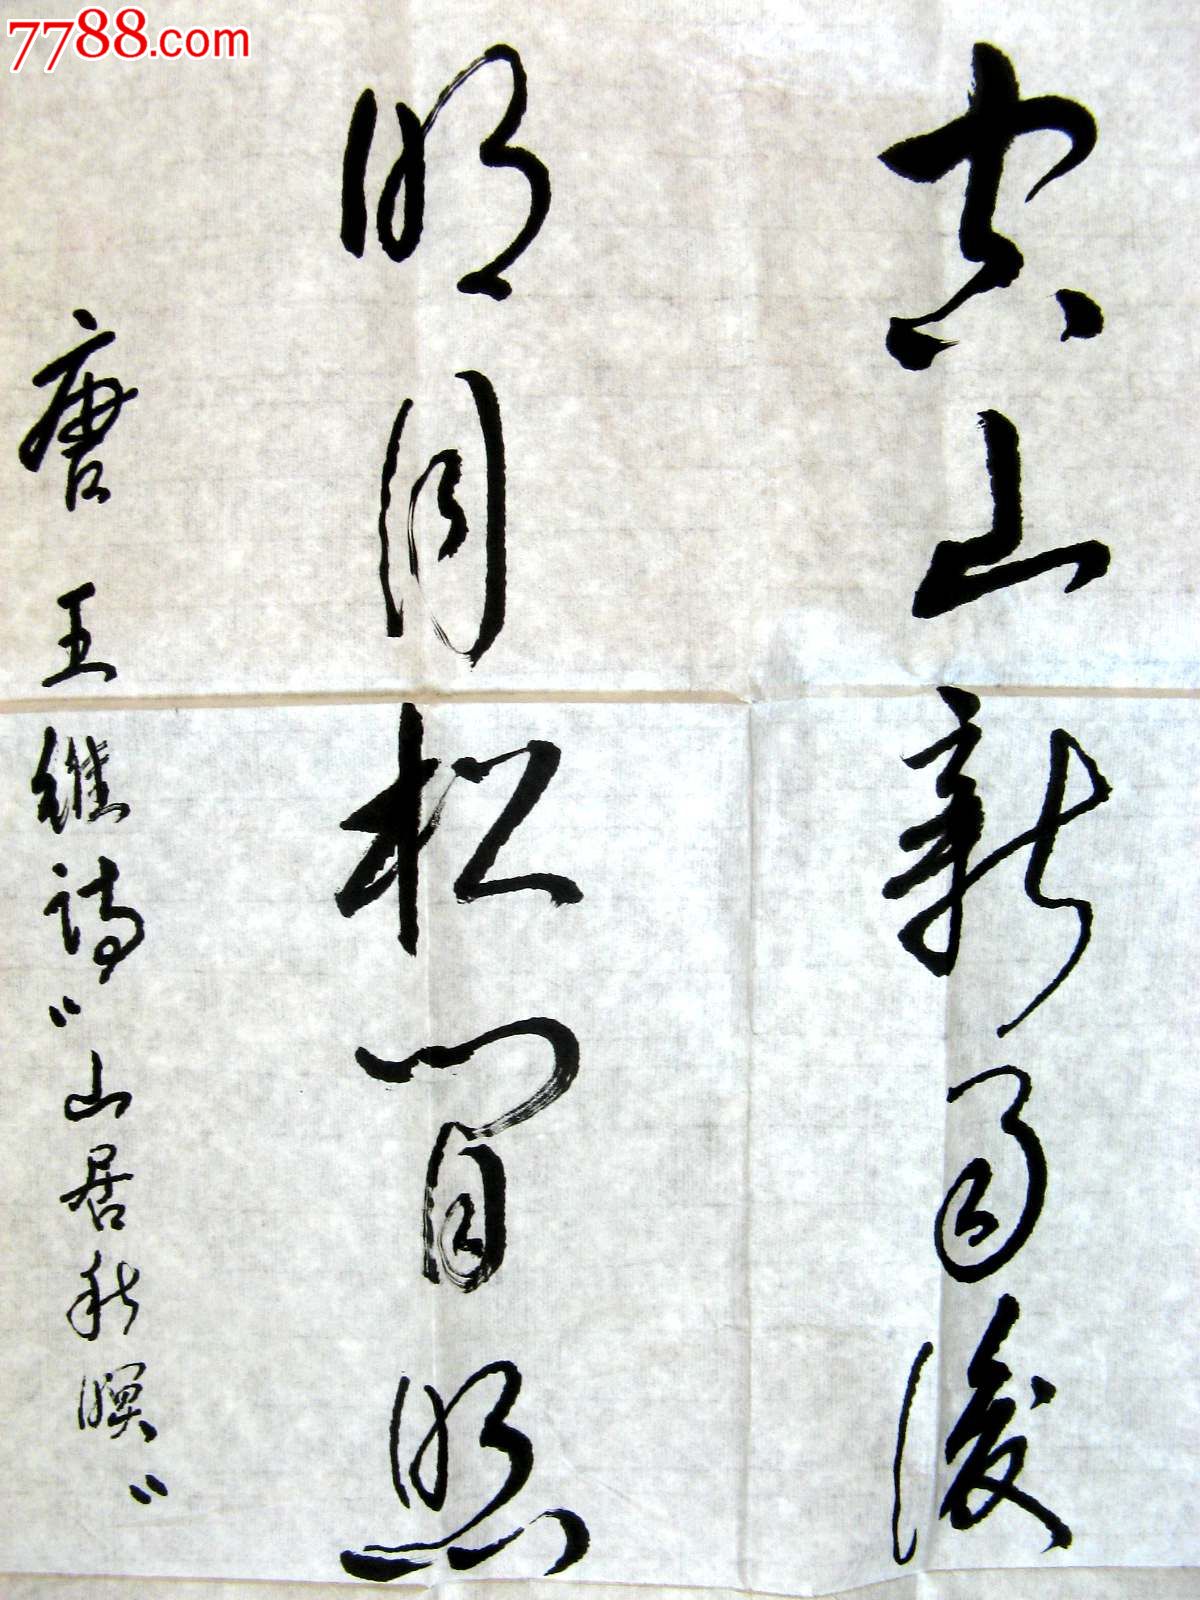 7788.com
空山新雨後
明月松间照
唐 王維詩"山居秋暝"